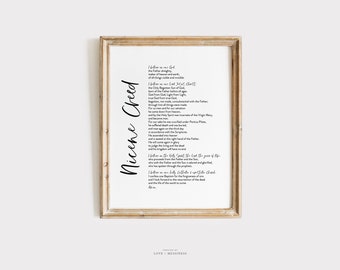 Nicene Creed
I believe in one God,
the Father almighty,
maker of heaven and earth,
of all things visible and invisible.
I believe in one Lord Jesus Christ,
the Only Begotten Son of God,
born of the Father before all ages.
God from God, Light from Light,
true God from true God,
begotten, not made, consubstantial with the Father;
through him all things were made.
For us men and for our salvation
he came down from heaven,
and by the Holy Spirit was incarnate of the Virgin Mary,
and became man.
For our sake he was crucified under Pontius Pilate,
he suffered death and was buried,
and rose again on the third day
in accordance with the Scriptures.
He ascended into heaven
and is seated at the right hand of the Father.
He will come again in glory
to judge the living and the dead
and his kingdom will have no end.
I believe in the Holy Spirit, the Lord, the giver of life,
who proceeds from the Father and the Son,
who with the Father and the Son is adored and glorified,
who has spoken through the prophets.
I believe in one, holy, catholic and apostolic Church.
I confess one Baptism for the forgiveness of sins
and I look forward to the resurrection of the dead
and the life of the world to come.
Amen.